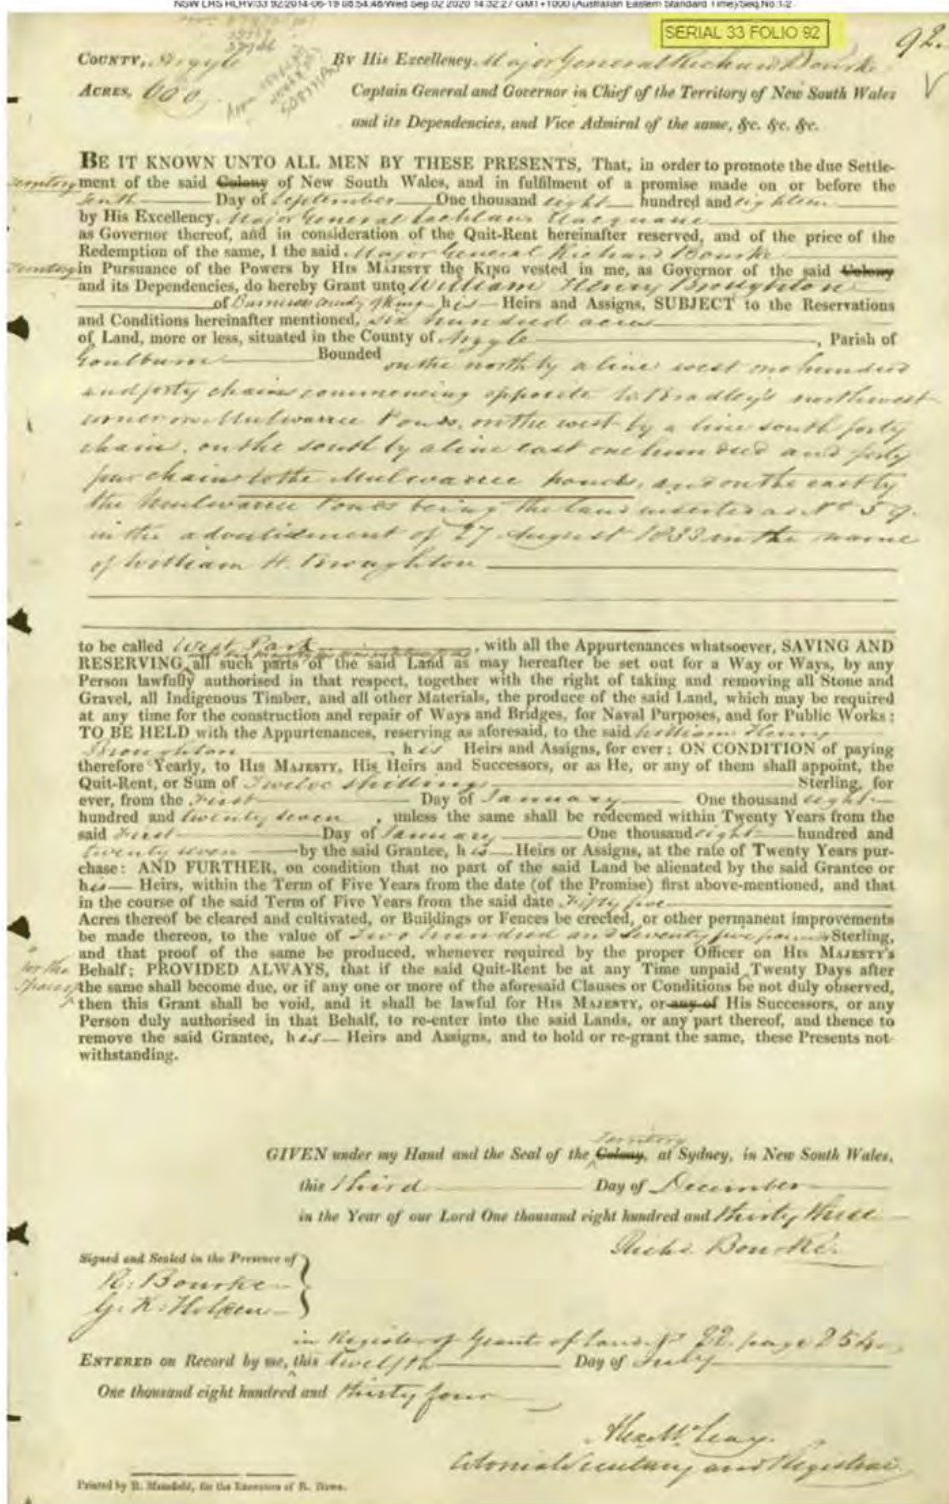 NSW LRS HLRV/33 92/2014-06-19 08:54:48/Wed Sep 02 2020 14:32:27 GMT+1000 (Australian Eastern Standard Time)/Seq.No:1-2
SERIAL 33 FOLIO 92
92.
COUNTY, Argyle By His Excellency, Major General Richard Bourke
ACRES, 600 Captain General and Governor in Chief of the Territory of New South Wales
and its Dependencies, and Vice Admiral of the same, &c. &c. &c.
BE IT KNOWN UNTO ALL MEN BY THESE PRESENTS, That, in order to promote the due Settle-
Territory ment of the said Colony of New South Wales, and in fulfilment of a promise made on or before the
tenth Day of September One thousand eight hundred and eighteen
by His Excellency, Major General Lachlan Macquarie
as Governor thereof, and in consideration of the Quit-Rent hereinafter reserved, and of the price of the
Redemption of the same, I the said Major General Richard Bourke
Territory in Pursuance of the Powers by HIS MAJESTY the KING vested in me, as Governor of the said Colony
and its Dependencies, do hereby Grant unto William Henry Broughton
of his Heirs and Assigns, SUBJECT to the Reservations
and Conditions hereinafter mentioned, six hundred acres
of Land, more or less, situated in the County of Argyle, Parish of
Goulburn Bounded on the north by a line west one hundred
and forty chains commencing opposite W. Bradley's northwest
corner on Mulwarree Ponds, on the west by a line south forty
chains, on the south by a line east one hundred and forty
four chains to the Mulwarree ponds, and on the east by
the Mulwarree Ponds being the land inserted as No 59.
in the advertisement of 27 August 1833 in the name
of William H. Broughton
to be called West Park, with all the Appurtenances whatsoever, SAVING AND
RESERVING all such parts of the said Land as may hereafter be set out for a Way or Ways, by any
Person lawfully authorised in that respect, together with the right of taking and removing all Stone and
Gravel, all Indigenous Timber, and all other Materials, the produce of the said Land, which may be required
at any time for the construction and repair of Ways and Bridges, for Naval Purposes, and for Public Works:
TO BE HELD with the Appurtenances, reserving as aforesaid, to the said William Henry
Broughton, his Heirs and Assigns, for ever; ON CONDITION of paying
therefore Yearly, to HIS MAJESTY, His Heirs and Successors, or as He, or any of them shall appoint, the
Quit-Rent, or Sum of Twelve shillings Sterling, for
ever, from the First Day of January One thousand eight
hundred and twenty seven, unless the same shall be redeemed within Twenty Years from the
said First Day of January One thousand eight hundred and
twenty seven by the said Grantee, his Heirs or Assigns, at the rate of Twenty Years pur-
chase: AND FURTHER, on condition that no part of the said Land be alienated by the said Grantee or
his Heirs, within the Term of Five Years from the date (of the Promise) first above-mentioned, and that
in the course of the said Term of Five Years from the said date Fifty five
Acres thereof be cleared and cultivated, or Buildings or Fences be erected, or other permanent improvements
be made thereon, to the value of Two hundred and seventy five pounds Sterling,
and that proof of the same be produced, whenever required by the proper Officer on HIS MAJESTY'S
for the Behalf; PROVIDED ALWAYS, that if the said Quit-Rent be at any Time unpaid Twenty Days after
space of the same shall become due, or if any one or more of the aforesaid Clauses or Conditions be not duly observed,
then this Grant shall be void, and it shall be lawful for HIS MAJESTY, or any of His Successors, or any
Person duly authorised in that Behalf, to re-enter into the said Lands, or any part thereof, and thence to
remove the said Grantee, his Heirs and Assigns, and to hold or re-grant the same, these Presents not-
withstanding.
Territory
GIVEN under my Hand and the Seal of the Colony, at Sydney, in New South Wales,
this third Day of December
in the Year of our Lord One thousand eight hundred and thirty three
Richd. Bourke.
Signed and Sealed in the Presence of
R: Bourke
G. K: Holden
in Register of Grants of Land No 22 page 254
ENTERED on Record by me, this twelfth Day of July
One thousand eight hundred and thirty four
Alexr. McLeay.
Colonial Secretary and Registrar
Printed by R. Mansfield, for the Executors of R. Howe.